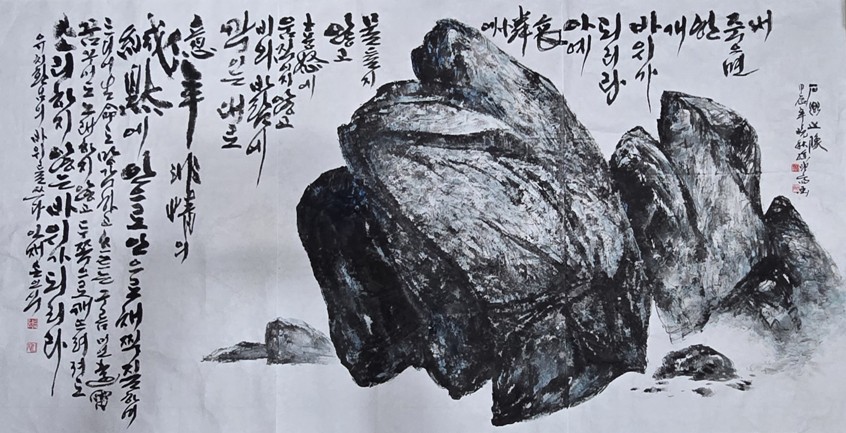 내
죽으면
한
개
바위가
되리라
아예
哀
憐
에
물들지
않고
喜怒에
움직이지 않고
비와 바람에
깎이는 대로
億年 非情의
緘黙에 안으로 안으로 채찍질하여
드디어 生命도 망각하고 흐르는 구름 머언 遠雷
꿈꾸어도 노래하지 않고 두 쪽으로 깨뜨려져도
소리하지 않는 바위가 되리라
유치환님의 바위를 쓰다
甲辰年 晩秋